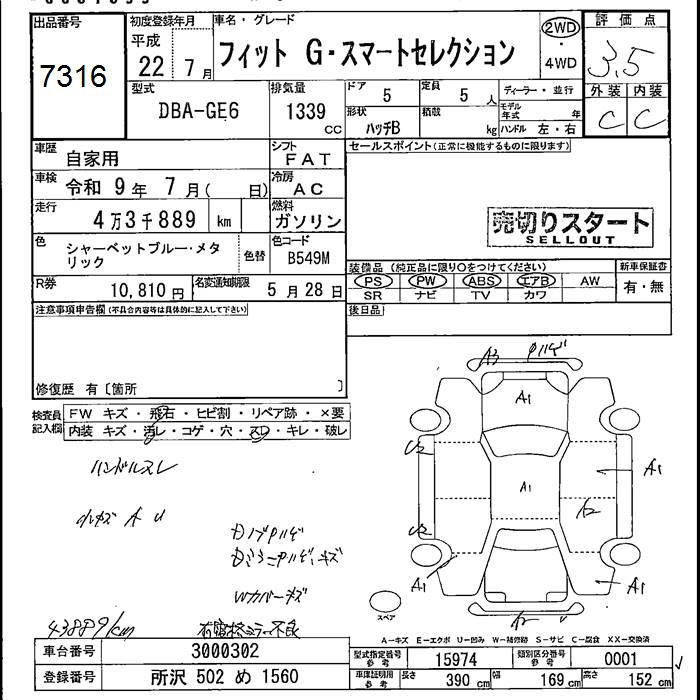 出品番号
7316
初度登録年月
平成
22 7月
車名・グレード
フィット G・スマートセレクション
2WD
・
4WD
評価点
3.5
外装 内装
C C
型式
DBA-GE6
排気量
1339
CC
ドア
5
定員
5 人
形状
ハッチB
積載
kg
ディーラー・並行
モデル年式 年
ハンドル 左・右
車歴
自家用
シフト
FAT
車検
令和 9年 7月( 日)
冷房
AC
走行
4万3千889 km
燃料
ガソリン
色
シャーベットブルー・メタ
リック
色替
色コード
B549M
R券
10,810円
名変通知期限
5月28日
セールスポイント(正常に機能するものに限ります)
売切りスタート
SELLOUT
装備品 (純正品に限り○をつけてください)
PS PW ABS エアB AW
SR ナビ TV カワ
新車保証書
有・無
後日品
注意事項申告欄(不具合内容等は具体的に記入して下さい)
修復歴 有〔箇所 〕
検査員
記入欄
FW キズ・飛石・ヒビ割・リペア跡・×要
内装 キズ・汚レ・コゲ・穴・スレ・キレ・破レ
ハンドルスレ
小キズ A U
Wカバーキズ
43889km
A3
A1
A1
A1
A1
A1
U2
U2
スペア
A-キズ E-エクボ U-凹み W-補修跡 S-サビ C-腐食 XX-交換済
車台番号
3000302
登録番号
所沢 502 め 1560
型式指定番号
参考
15974
類別区分番号
参考
0001
車庫証明用
参考
長さ 390cm 幅 169cm 高さ 152cm